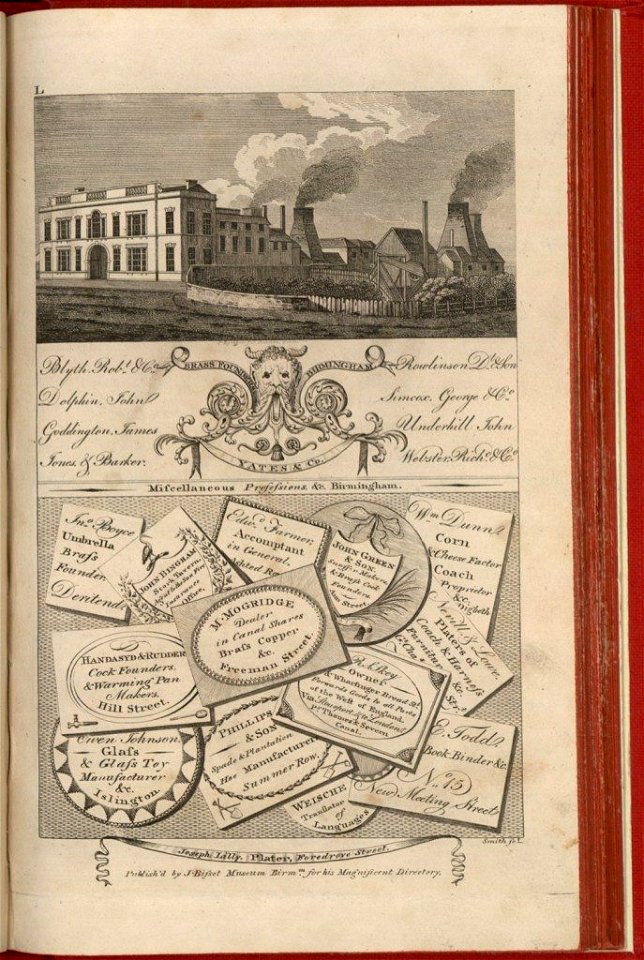 L
Blyth, Robt. & Co.
Dolphin, John
Goddington, James
Jones, & Barker.
BRASS FOUND BIRMINGHAM
YATES & Co.
Rowlinson D. & Son
Simcox, George & Co.
Underhill John
Webster, Richd. & Co.
Miscellaneous Professions &c. Birmingham.
Jno. Boyce
Umbrella
Brass
Founder
Deritend
JOHN BINGHAM
Office,
Edwd. Farmer,
Accomptant
in General,
JOHN GREEN
& SON.
Snuffer Makers
& Brass Cock
Founders
Street
Wm. Dunn
Corn
& Cheese Factor
Coach
Proprietor
&c.
Digbeth
M. MOGRIDGE
Dealer
in Canal Shares
Brass Copper
&c.
Freeman Street.
& Lowe,
Platers of
Coach & Harness
Furniture &c.
HANDASYD & RUDDER
Cock Founders,
& Warming Pan
Makers,
Hill Street.
Owner
& Wharfinger Broad St.
Forwards Goods to all Parts
of the West of England,
Via Stourport & to London
pr. Thames & Severn
Canal.
Owen Johnson,
Glass
& Glass Toy
Manufacturer
&c.
Islington.
PHILLIPS
& SON
Spade & Plantation
Hoe Manufacturers
Summer Row.
WEISCHE
Translator
of
Languages
E. Todd
Book Binder &c.
No. 15
New Meeting Street
Smith sct.
Joseph Lilly, Plater, Foredrove Street.
Publish'd by J. Bisset Museum Birmm. for his Magnificent Directory.